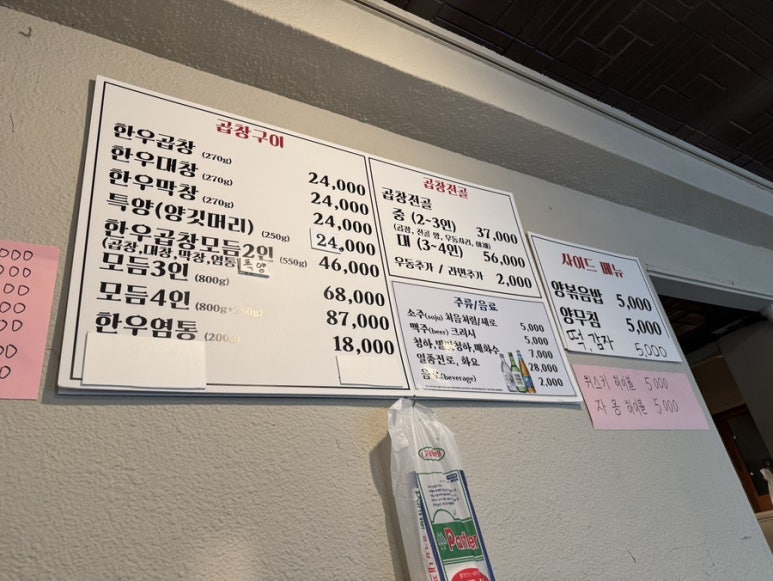 000
000
000
00
00
0
곱창구이
한우곱창 (270g) 24,000
한우대창 (270g) 24,000
한우막창 (270g) 24,000
특양(양깃머리) (250g) 24,000
한우곱창모듬2인 (550g) 46,000
(곱창,대창,막창,염통 특양
모듬3인 (800g) 68,000
모듬4인 87,000
한우염통 (200g) 18,000
곱창전골
곱창전골
중 (2~3인) 37,000
대 (3~4인) 56,000
우동추가 / 라면추가 2,000
주류/음료
소주(soju) 처음처럼/새로 5,000
맥주(beer) 크러시 5,000
청하, 매화수 7,000
일품진로, 화요 28,000
(beverage) 2,000
사이드 메뉴
양볶음밥 5,000
양무침 5,000
떡,감자 5,000
위스키 하이볼 5,000
자몽 하이볼 5,000